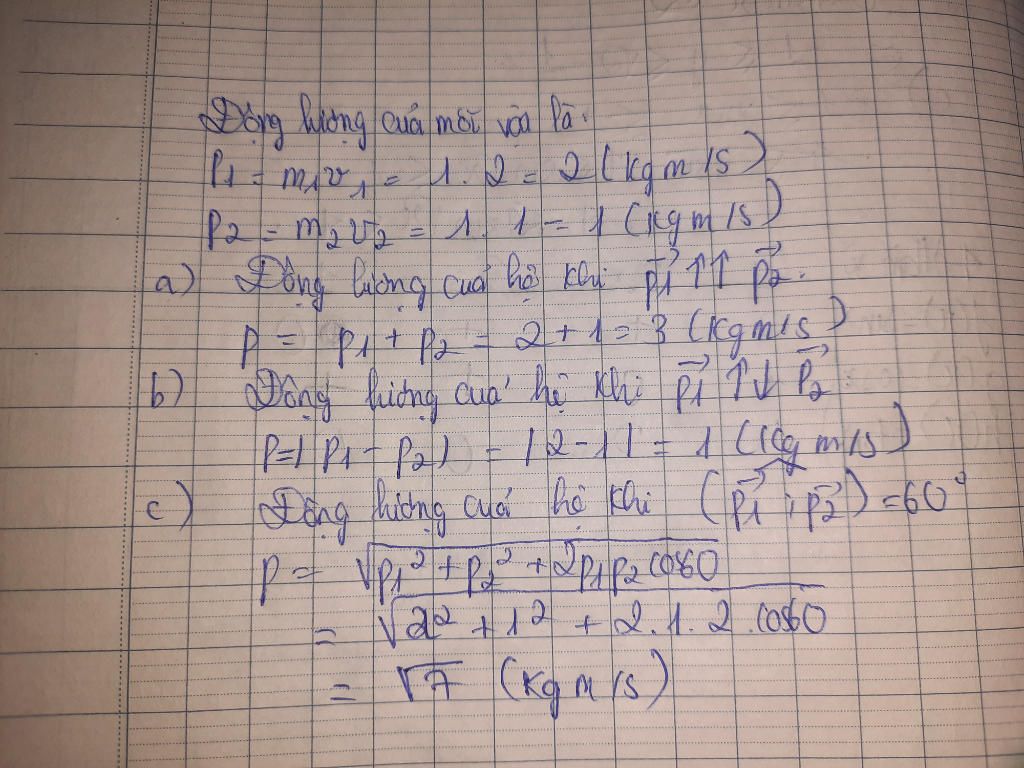 Động lượng của mỗi vật là:
P1 = m1v1 = 1.2 = 2 (kgm/s)
P2 = m2v2 = 1.1 = 1 (kgm/s)
a) Động lượng của hệ khi p1→ ↑↑ p2→.
p = p1 + p2 = 2 + 1 = 3 (kgm/s)
b) Động lượng của hệ khi p1→ ↑↓ p2→
p = |p1 - p2| = |2 - 1| = 1 (kgm/s)
c) Động lượng của hệ khi (p1→ ; p2→) = 60°
p = √(p1² + p2² + 2p1p2 cos60)
= √(2² + 1² + 2.1.2.cos60)
= √7 (kgm/s)